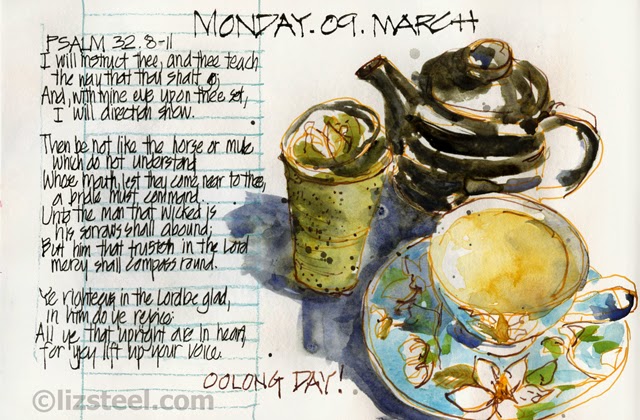 MONDAY. 09. MARCH
PSALM 32. 8-11
I will instruct thee, and thee teach
the way that thou shalt go;
And, with mine eye upon thee set,
I will direction show.
Then be not like the horse or mule
which do not understand
Whose mouth, lest they come near to thee,
a bridle must command.
Unto the man that wicked is
his sorrows shall abound;
But him that trusteth in the Lord
mercy shall compass round.
Ye righteous in the Lord be glad,
in him do ye rejoice:
All ye that upright are in heart,
for joy lift up your voice.
OOLONG DAY!
©lizsteel.com